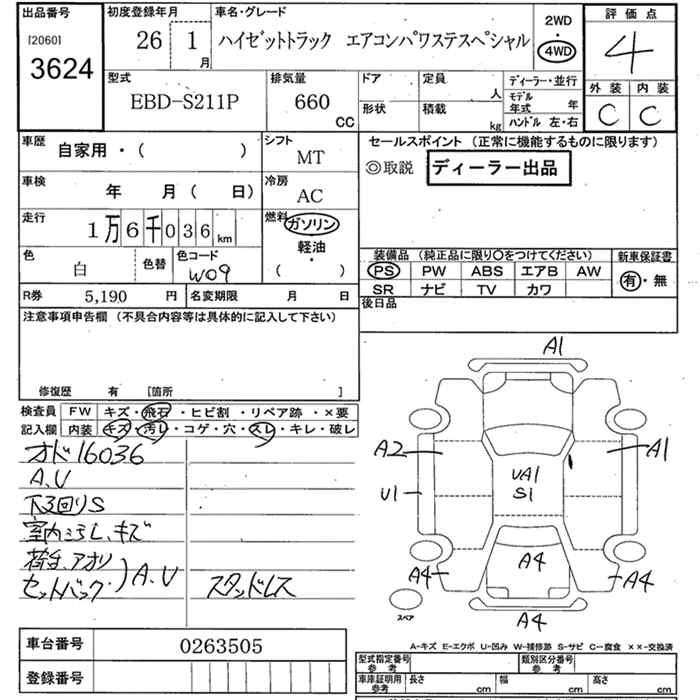 出品番号 初度登録年月 車名・グレード 2WD 評価点
[2060] 26 1月 ハイゼットトラック エアコンパワステスペシャル 4WD 4
3624
型式 排気量 ドア 定員 人 ディーラー・並行 外装 内装
EBD-S211P 660 CC 形状 積載 kg モデル年式 年 C C
ハンドル 左・右
車歴 自家用・( ) シフト MT セールスポイント (正常に機能するものに限ります)
◎取説 ディーラー出品
車検 年 月 ( 日) 冷房 AC
走行 1万6千036km 燃料 ガソリン・軽油・( )
色 白 色替 色コード W09 装備品 (純正品に限り○をつけてください) 新車保証書
PS PW ABS エアB AW 有・無
SR ナビ TV カワ
R券 5,190 円 名変期限 月 日 後日品
注意事項申告欄 (不具合内容等は具体的に記入して下さい)
修復歴 有 [箇所 ]
検査員 FW キズ・飛石・ヒビ割・リペア跡・×要
記入欄 内装 キズ・汚レ・コゲ・穴・スレ・キレ・破レ
オド16036
A,U
下3回りS
室内ヨゴレ,キズ
荷台,アオリ
セットバック )A,U スタッドレス
A1
A2 A1
U1 UA1
S1
A4
A4 A4
A4
スペア
A-キズ E-エクボ U-凹み W-補修跡 S-サビ C-腐食 ××-交換済
車台番号 0263505
登録番号
型式指定番号 参考 類別区分番号 参考
車庫証明用 参考 長さ cm 幅 cm 高さ cm